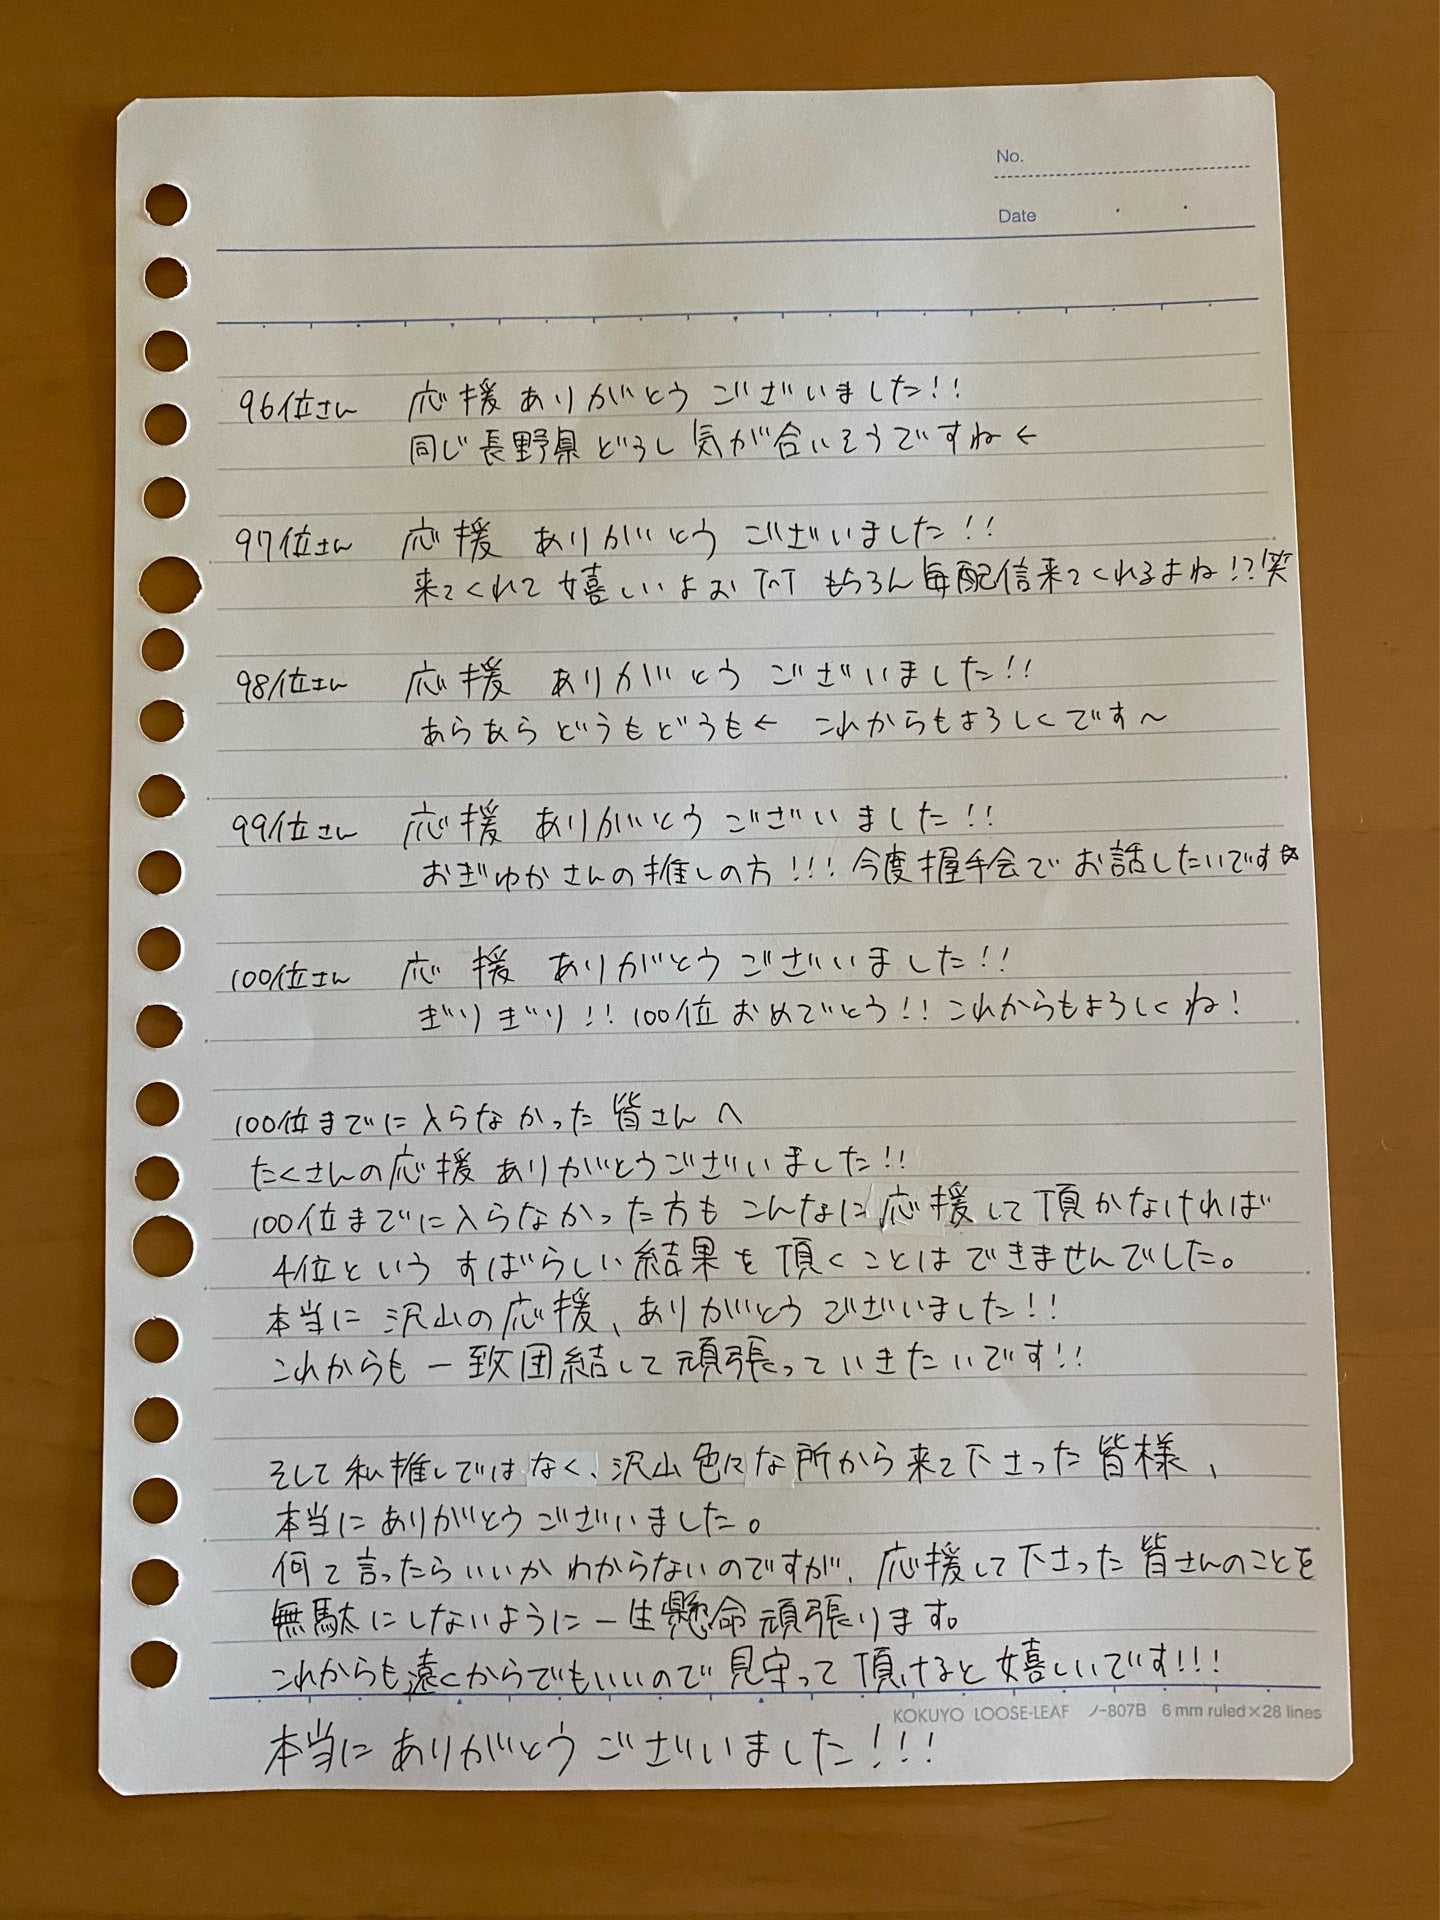 No.
Date
96位さん 応援ありがとうございました!!
同じ長野県どうし気が合いそうですね←
97位さん 応援ありがとうございました!!
来てくれて嬉しいよぉTヘT もちろん毎配信来てくれるよね!?笑
98位さん 応援ありがとうございました!!
あらあらどうもどうも← これからもよろしくです〜
99位さん 応援ありがとうございました!!
おぎゆかさんの推しの方!!!今度握手会でお話したいです☆
100位さん 応援ありがとうございました!!
ぎりぎり!!100位おめでとう!!これからもよろしくね!
100位までに入らなかった皆さんへ
たくさんの応援ありがとうございました!!
100位までに入らなかった方もこんなに応援して頂かなければ
4位というすばらしい結果を頂くことはできませんでした。
本当に沢山の応援、ありがとうございました!!
これからも一致団結して頑張っていきたいです!!
そして私推しではなく、沢山色々な所から来て下さった皆様、
本当にありがとうございました。
何て言ったらいいかわからないのですが、応援して下さった皆さんのことを
無駄にしないように一生懸命頑張ります。
これからも遠くからでもいいので見守って頂けると嬉しいです!!!
KOKUYO LOOSE-LEAF ノ-807B 6 mm ruled×28 lines
本当にありがとうございました!!!